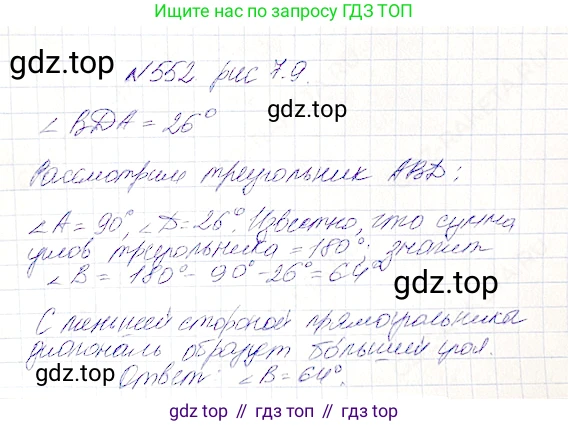 Ищите нас по запросу ГДЗ ТОП
gdz.top
№552 рис 7.9.
gdz.top
∠BDA = 26°
Рассмотрим треугольник ABD:
∠A = 90°, ∠D = 26°. Известно, что сумма
углов треугольника = 180°. значит
∠B = 180° - 90° - 26° = 64°
gdz.top
С меньшей стороной прямоугольника
диагональ образует больший угол.
gdz.top
Ответ: ∠B = 64°.
gdz.top // гдз.топ // gdz.top // гдз.топ